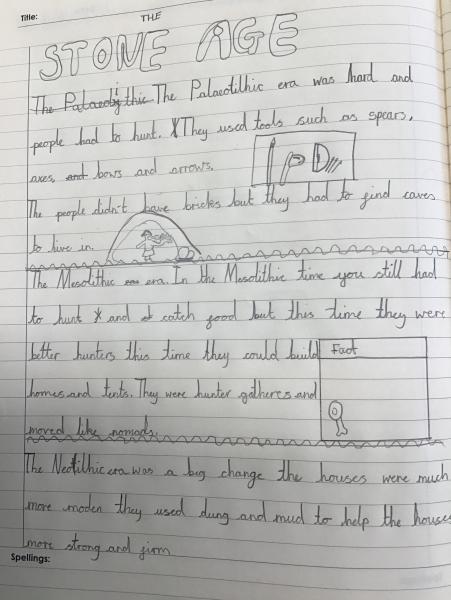 Title: THE
STONE AGE
The Palaeolithic The Palaeotilhic era was hard and
people had to hunt. They used tools such as spears,
axes, and bows and arrows.
The people didn't have bricks but they had to find caves
to live in.
The Mesolithic era. In the Mesolithic time you still had
to hunt and catch food but this time they were
better hunters this time they could build
Fact
homes and tents. They were hunter gatheres and
moved like nomads.
The Neotilhic era was a big change the houses were much
more moden they used dung and mud to help the houses
more strong and firm
Spellings: